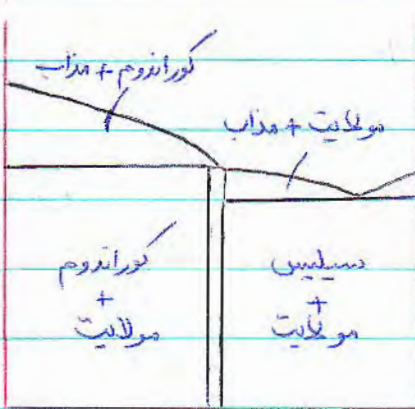 کوراندوم + مذاب
مولایت + مذاب
کوراندوم
+
مولایت
سیلیس
+
مولایت